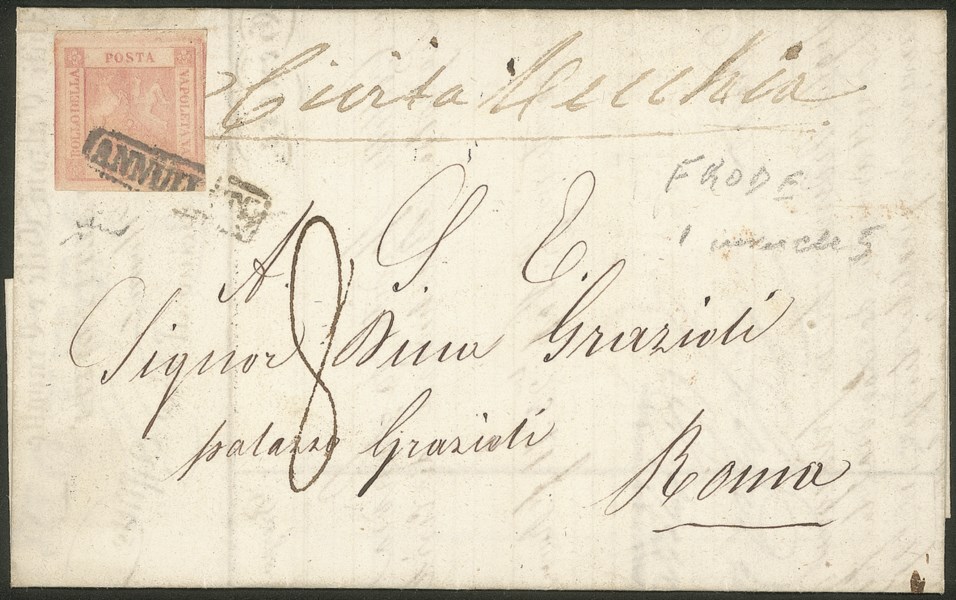 POSTA
BOLLO DELLA
NAPOLETANA
Civita Vecchia
ANNULLATO
FRODE
A. S. E.
8
Signor Duca Grazioli
palazzo Grazioli
Roma